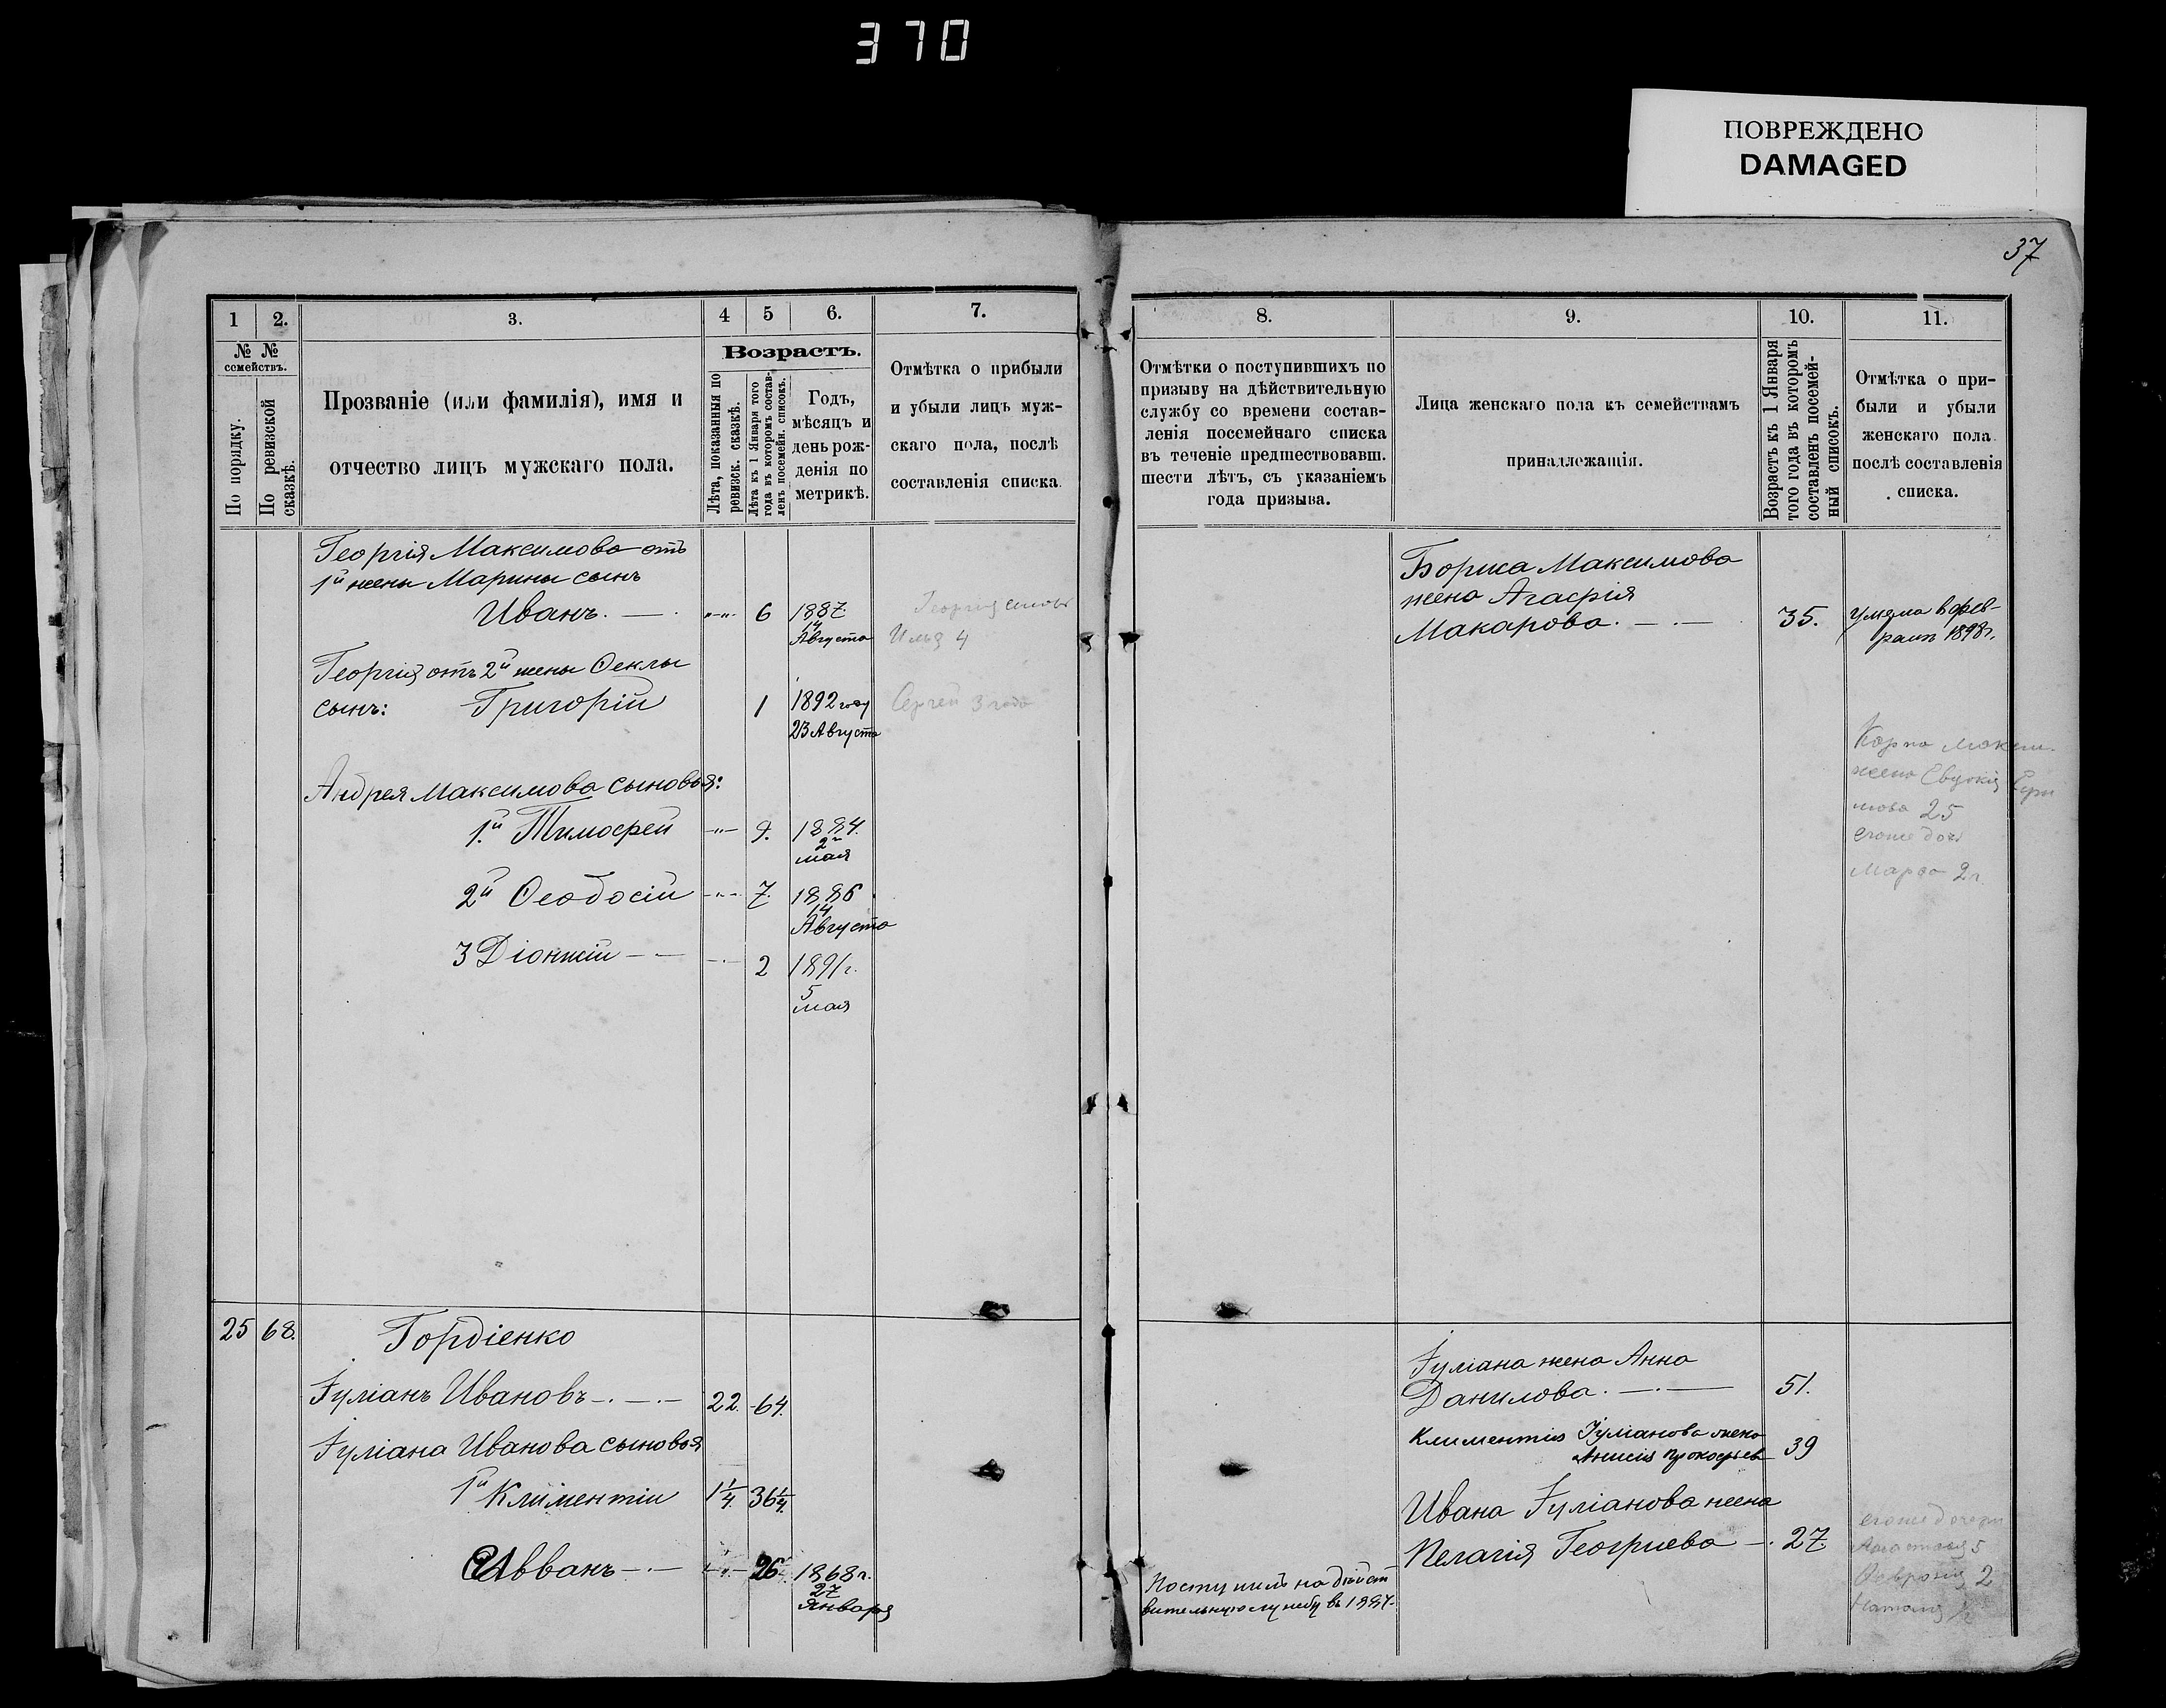 370
ПОВРЕЖДЕНО
DAMAGED
37
1
2.
3.
4
5
6.
7.
№ №
семействъ.
По порядку.
По ревизской
сказкѣ.
Прозваніе (или фамилія), имя и
отчество лицъ мужскаго пола.
Возрастъ.
Лѣта, показанныя по
ревизск. сказкѣ.
Лѣта къ 1 Января того
года въ которомъ состав-
ленъ посемейн. списокъ.
Годъ,
мѣсяцъ и
день рож-
денія по
метрикѣ.
Отмѣтка о прибыли
и убыли лицъ муж-
скаго пола, послѣ
составленія списка.
Георгія Максимова отъ
1й жены Марины сынъ
Иванъ. — „ 6 1887.
14
Августа
Георгія сынов
Илья 4
Георгія отъ 2й жены Ѳеклы
сынъ: Григорій 1 1892 году
23 Августа
Сергей 3 года
Андрея Максимова сыновья:
1й Тимофей — „ — 9. 1884.
2
мая
2й Ѳеодосій — „ — 7. 1886
14
Августа
3 Діонисій — — 2 1891г.
5
мая
25 68. Гордіенко
Іуліанъ Ивановъ — . — 22. 64.
Іуліана Иванова сыновья
1й Климентій 1 1/4 36 1/4
Иванъ — . — „ 26 1868г.
27
Января
8.
9.
10.
11.
Отмѣтки о поступившихъ по
призыву на дѣйствительную
службу со времени состав-
ленія посемейнаго списка
въ теченіе предшествовавш.
шести лѣтъ, съ указаніемъ
года призыва.
Лица женскаго пола къ семействамъ
принадлежащія.
Возрастъ къ 1 Января
того года въ которомъ
составленъ посемей-
ный списокъ.
Отмѣтка о при-
были и убыли
женскаго пола
послѣ составленія
списка.
Бориса Максимова
жена Агафія
Макарова. — . — 35.
Умерла в фев-
рале 1898г.
Карпа Максим.
жена Евдокія
25
его же доч
Марфа 2 г.
Іуліана жена Анна
Данилова. — . — 51.
Климентія Іуліанова жена
Анисія Прокофьев 39
Ивана Іуліанова жена
Пелагія Георгиева — . 27.
Поступилъ на дѣйст
вительную службу въ 1887.
его же дочери
5
Ѳеврония 2
Наталія 1/2